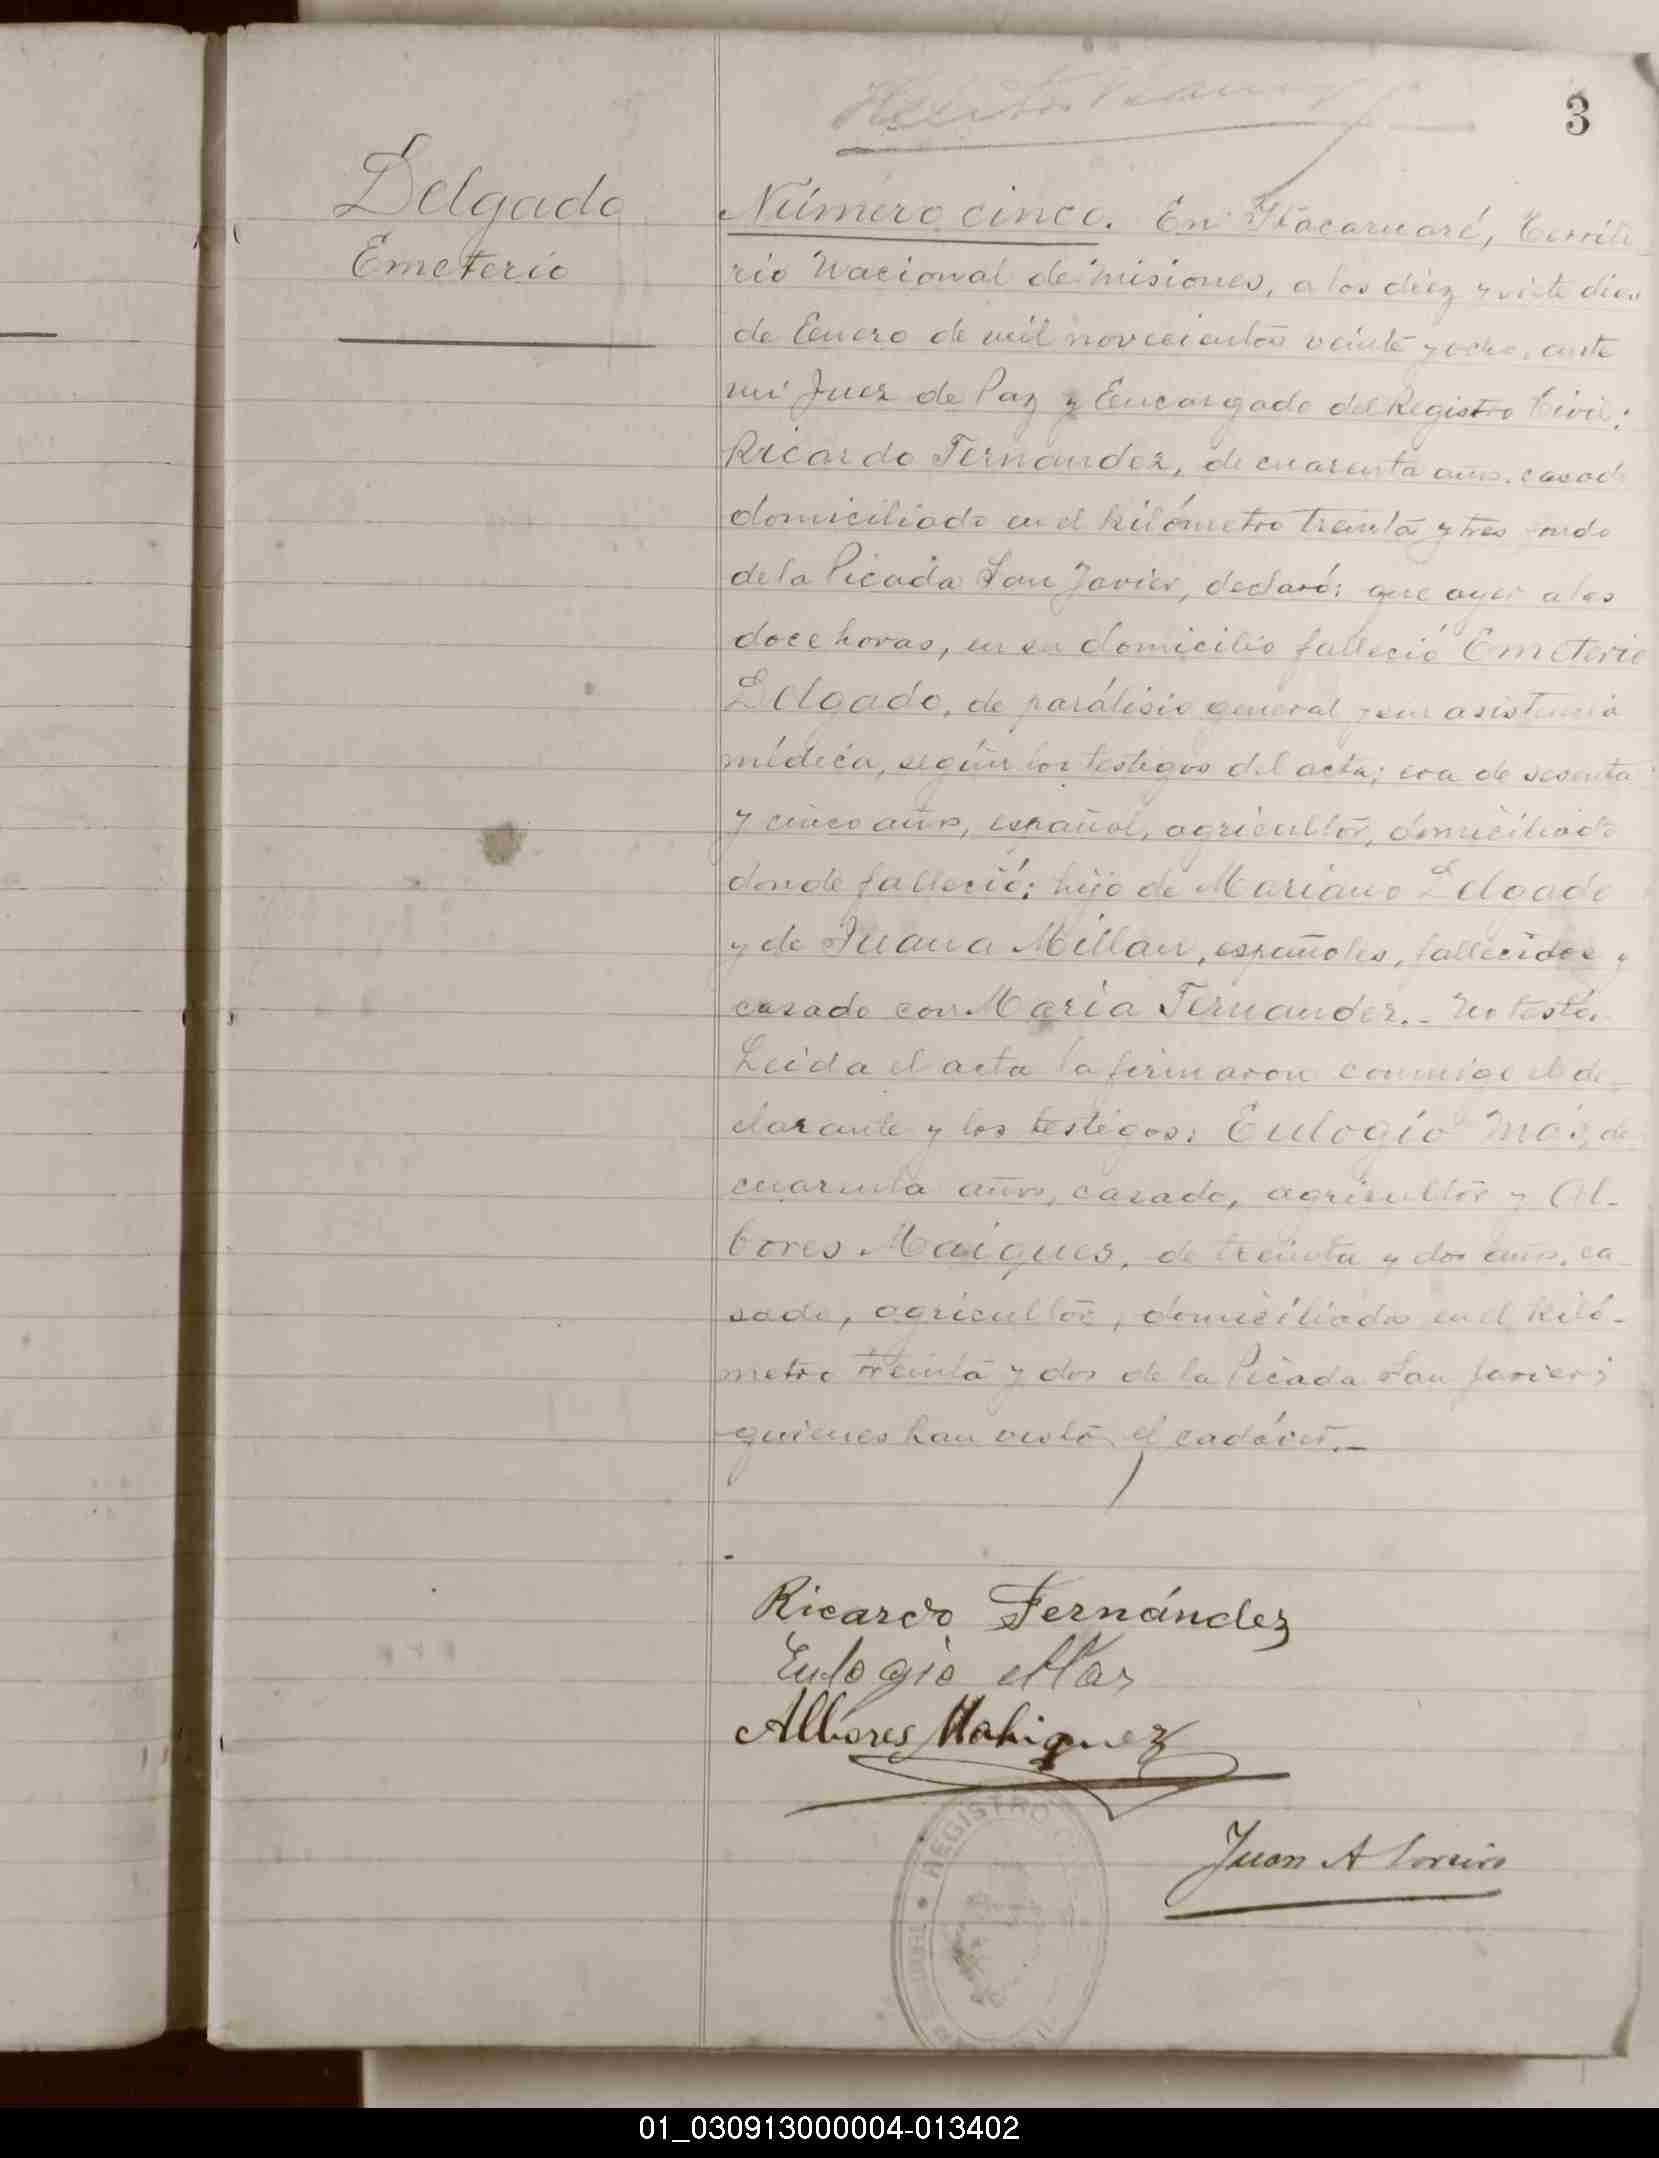 3
Delgado
Emeterio
Número cinco. En Itacaruaré, Territo-
rio Nacional de Misiones, a los diez y siete dias
de Enero de mil novecientos veinte y ocho, ante
mi Juez de Paz y Encargado del Registro Civil:
Ricardo Fernandez, de cuarenta años, casado
domiciliado en el kilómetro treinta y tres
de la Picada San Javier, declaró: que ayer a las
doce horas, en su domicilio falleció Emeterio
Delgado, de parálisis general y sin asistencia
médica, según los testigos del acta; era de sesenta
y cinco años, español, agricultor, domiciliado
donde falleció; hijo de Mariano Delgado
y de Juana Millan, españoles, fallecidos y
casado con Maria Fernandez.- No testó.
Leida el acta la firmaron conmigo el de-
clarante y los testigos: Eulogio Mas, de
cuarenta años, casado, agricultor y Al-
bores Maiques, de treinta y dos años, ca-
sado, agricultor, domiciliados en el kiló-
metro treinta y dos de la Picada San Javier;
quienes han visto el cadáver.-
Ricardo Fernández
Eulogio Mas
Albores Mahiquez
Juan A
REGISTRO
01_030913000004-013402